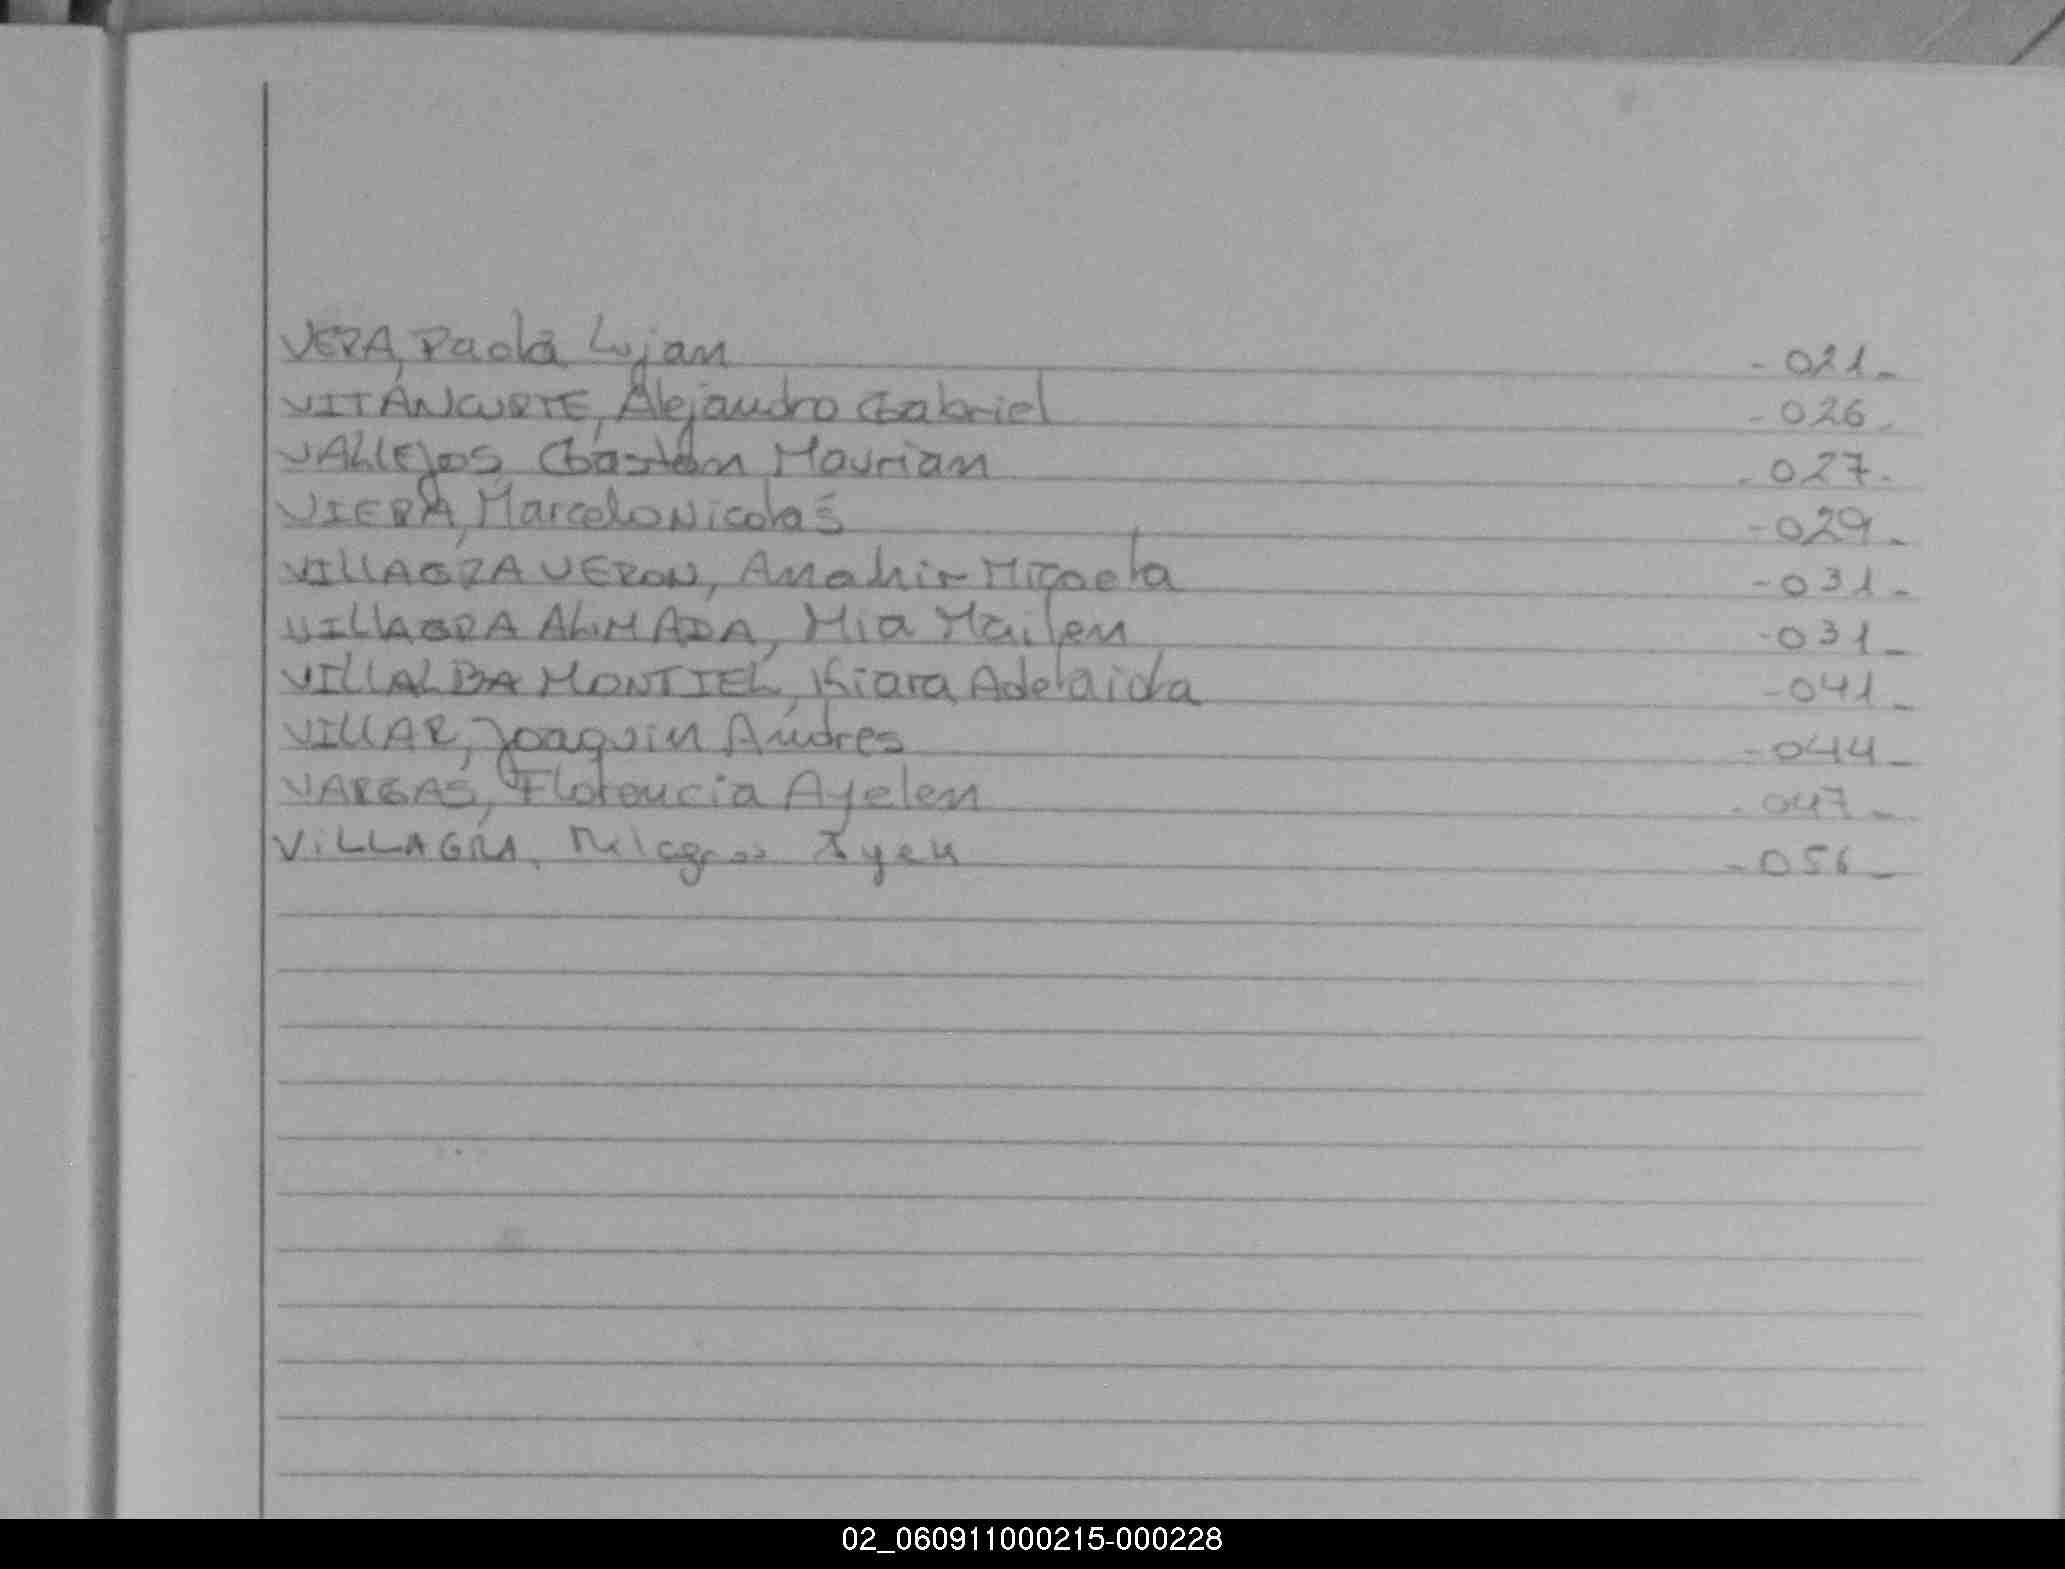 VERA, Paola Lujan - 021 -
VITANCURTE, Alejandro Gabriel - 026 -
VALLEJOS Gastón Maurian - 027 -
VIERA, Marcelo Nicolas - 029 -
VILLAGRA VERON, Anahir Micaela - 031 -
VILLAGRA ALMADA, Mia Mailen - 031 -
VILLALBA MONTIEL, Kiara Adelaida - 041 -
VILLAR, Joaquin Andres - 044 -
VARGAS, Florencia Ayelen - 047 -
VILLAGRA, Milagros - 056 -
02_060911000215-000228